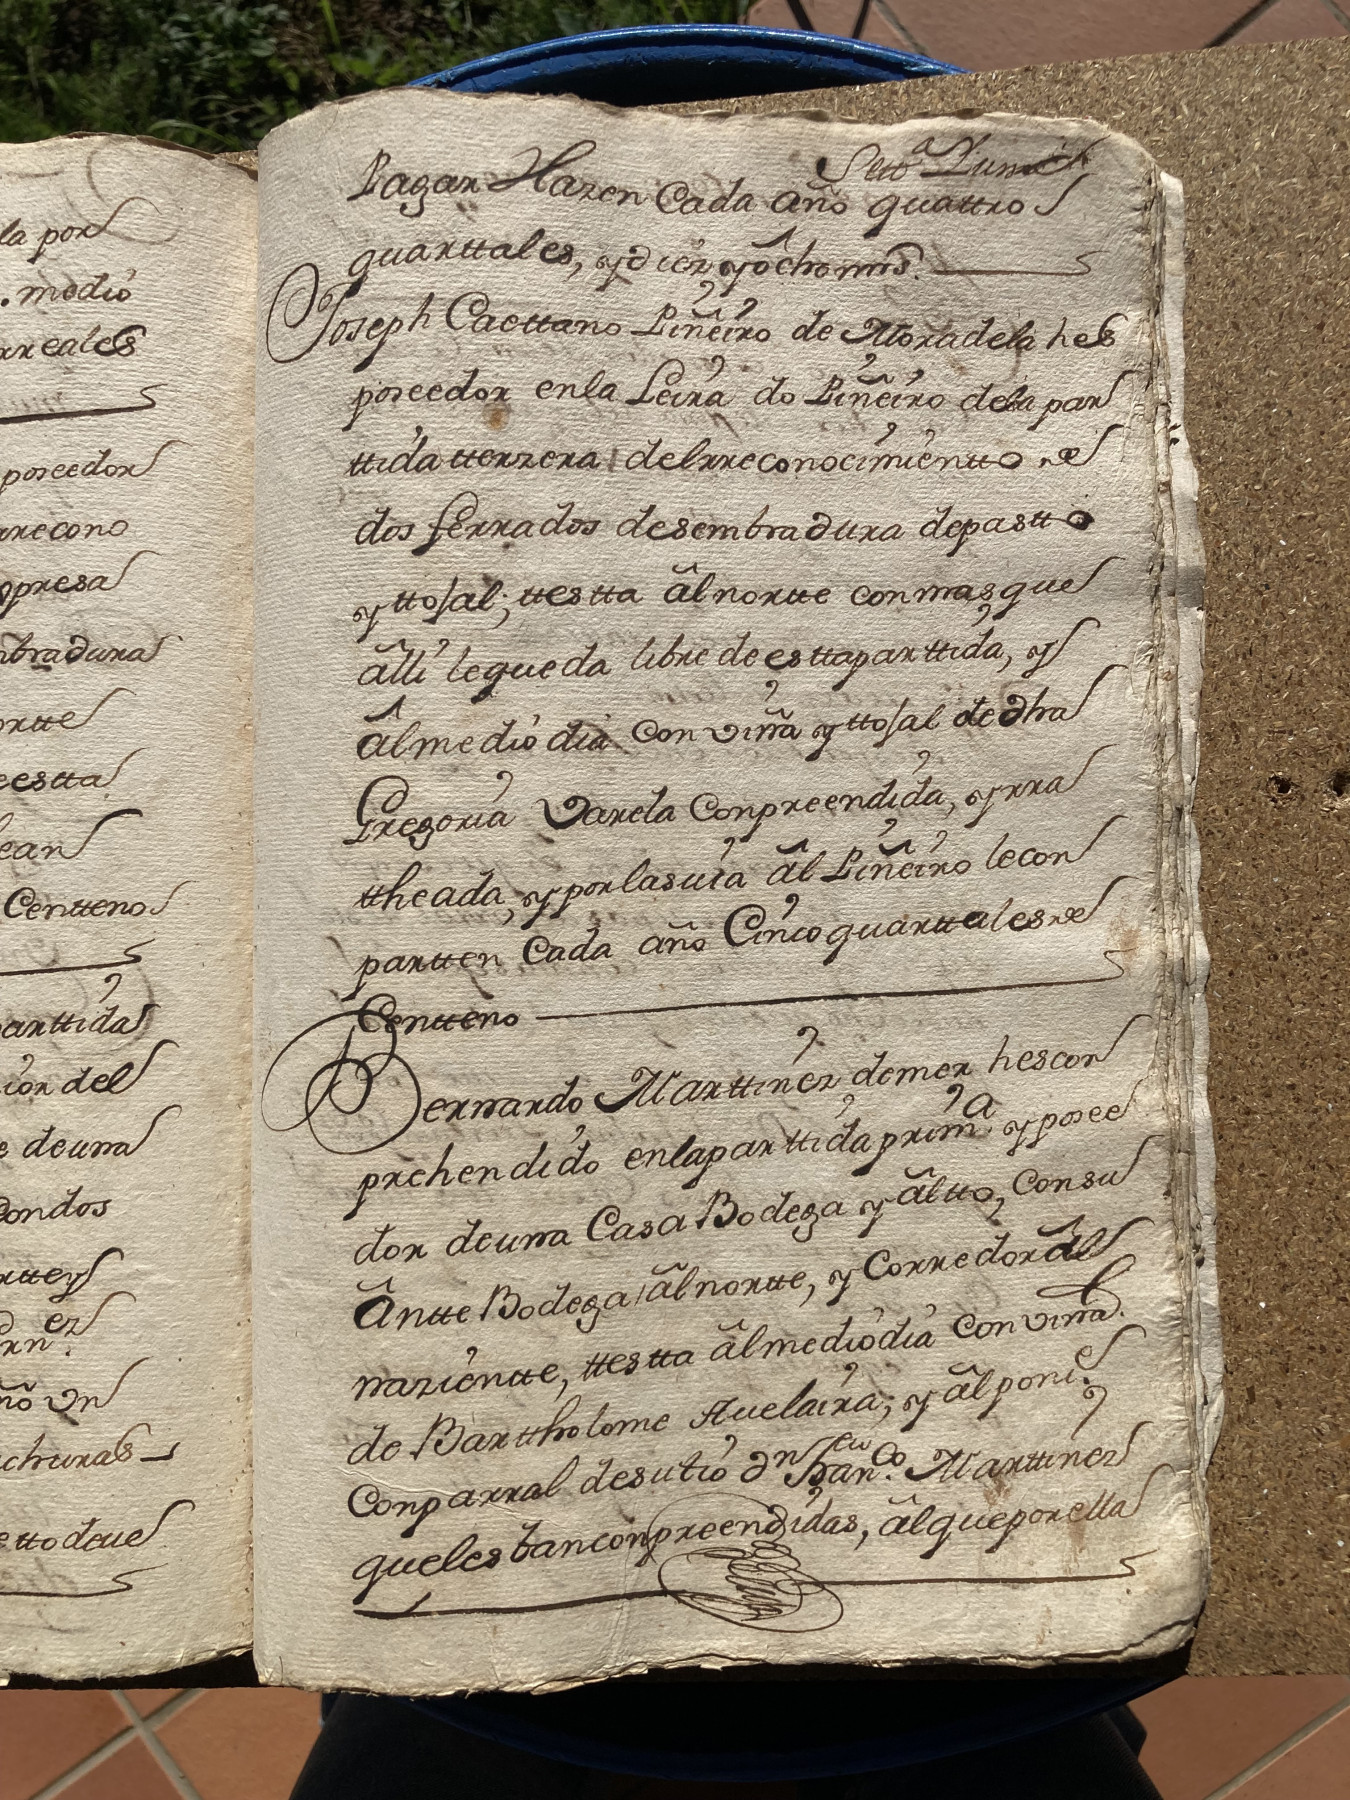 la por
. medio
rreales
poseedor
rrecono
presa
mbradura
ortte
eestta
lean
Centteno.
parttida
ion del
e de una
Condos
rttey
rn.ez
ño vn
churas
etto deue
Settª
Pagar Hazen Cada año quattro
quarttales, y diez y ôcho mrs.
Joseph Caettano Piñeiro de Moradela hes
poseedor en la Leira do Piñeiro de la par
ttida tterzera del rreconocimientto de
dos ferrados de sembradura de pastto
y ttojal; ttestta âl nortte con mas que
âlli le queda libre de estta parttida, y
âl medio dia con viña y ttojal de dha
Gregoria Varela Conpreendida, y rra
ttheada, y por la suia âl Piñeiro le con
partten Cada año Cinco quarttales de
Centteno
Bernardo Marttinez de mer hes con
prehendido en la parttida primª y posee
dor de una Casa Bodega y âltto, Con su
ântte Bodega âl nortte, y Corredor âl
nazientte, ttestta âl medio dia con viña
de Barttholome Auelaira; y âl ponie
Con parral de su tio dn Franco. Marttinez
que les ban conpreendidas, âl que por ella